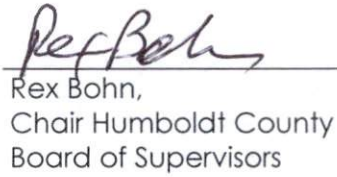 Rex Bohn
Rex Bohn,
Chair Humboldt County
Board of Supervisors